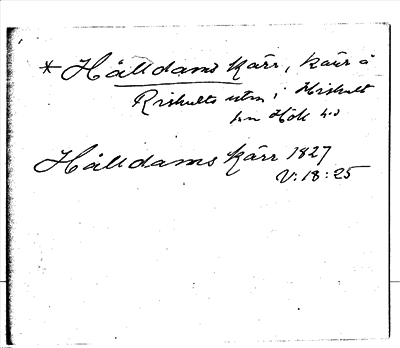 * Hålldams kärr, kärr å
Rishults utm i Hishult
sn Hök hd
Hålldams kärr 1827
V:18:25